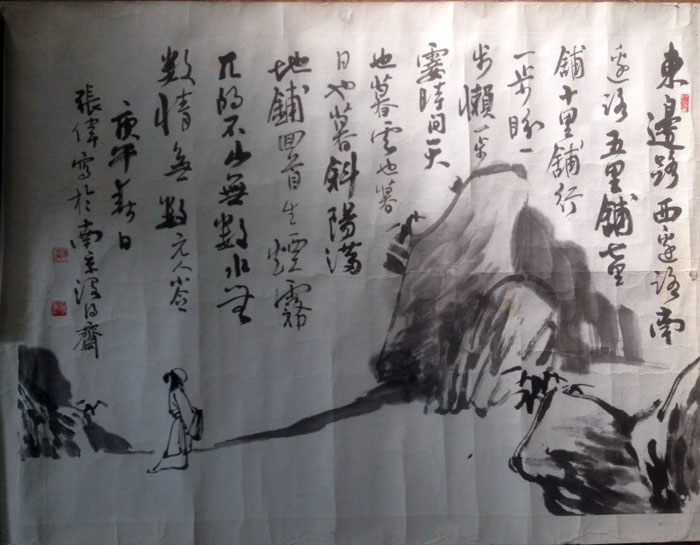 東邊路西邊路南
邊路五里舖七里
舖十里舖行
一步盼一
步懶一步
霎時間天
也暮雲也暮
日也暮斜陽滿
地鋪回首生煙霧
兀的不山無數水無
數情無數元人小令
庚午春日
張偉寫於南京齋